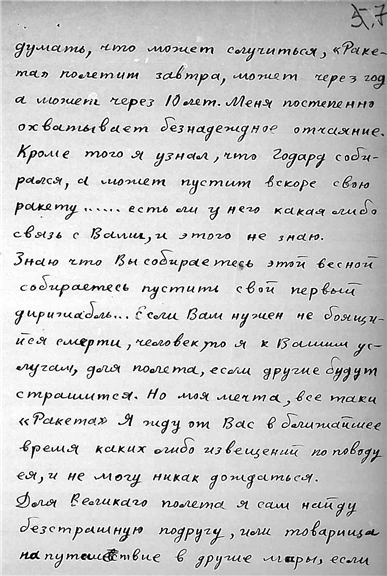 5,7
думать, что может случиться, «Раке-
та» полетит завтра, может через год
а может через 10 лет. Меня постепенно
охватывает безнадежное отчаяние.
Кроме того я узнал, что Годард соби-
рался, а может пустит вскоре свою
ракету...... есть ли у него какая либо
связь с Вами, и этого не знаю.
Знаю что Вы собираетесь этой весной
собираетесь пустить свой первый
дирижабль... Если Вам нужен не боящи-
йся смерти, человек, то я к Вашим ус-
лугам, для полета, если другие будут
страшится. Но моя мечта, все таки
«Ракета» Я жду от Вас в ближайшее
время каких либо извещений по поводу
ея, и не могу никак дождаться.
Для Великаго полета я сам найду
безстрашную подругу, или товарища
на путешествие в другие миры, если